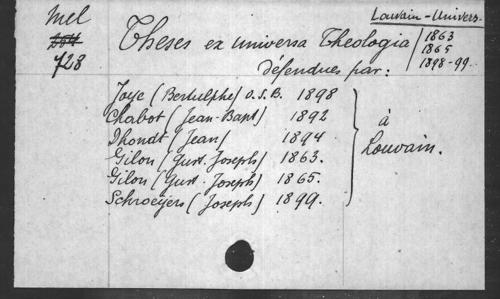 Mel
728
Louvain - Univers.
1863
1865
1898-99.
Theses ex universa Theologia
défendues par:
Joye (Bertulphe) O.S.B. 1898
Chabot (Jean-Bapt) 1892
Dhondt (Jean) 1894
Gilon (Gust. Joseph) 1863.
Gilon (Gust. Joseph) 1865.
Schroeijers (Joseph) 1899.
à
Louvain.